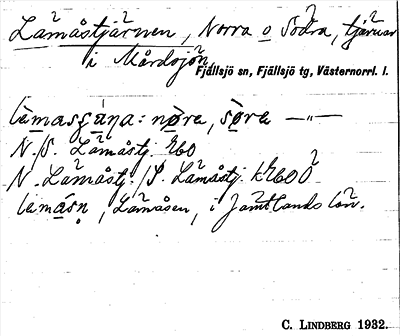 Lämåstjärnen, Norra o Södra, tjärnar
i Mårdsjön,
Fjällsjö sn, Fjällsjö tg, Västernorrl. l.
nøra, søra —„—
N./S. Lämåstj. E60
N. Lämåstj./S. Lämåstj. kE60Ö
Lämåsen, i Jämtlands län.
C. LINDBERG 1932.